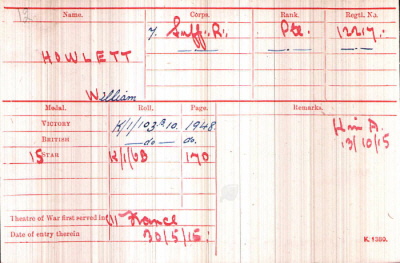 Name. Corps. Rank. Regtl. No.
HOWLETT 7. Suff. R. Pte. 12217.
William
Medal. Roll. Page. Remarks.
VICTORY K/1/103.B10. 1948.
BRITISH do do.
15 STAR K/1/6B 170
K in A.
13/10/15
Theatre of War first served in (1) France
Date of entry therein 30/5/15.
K 1380.